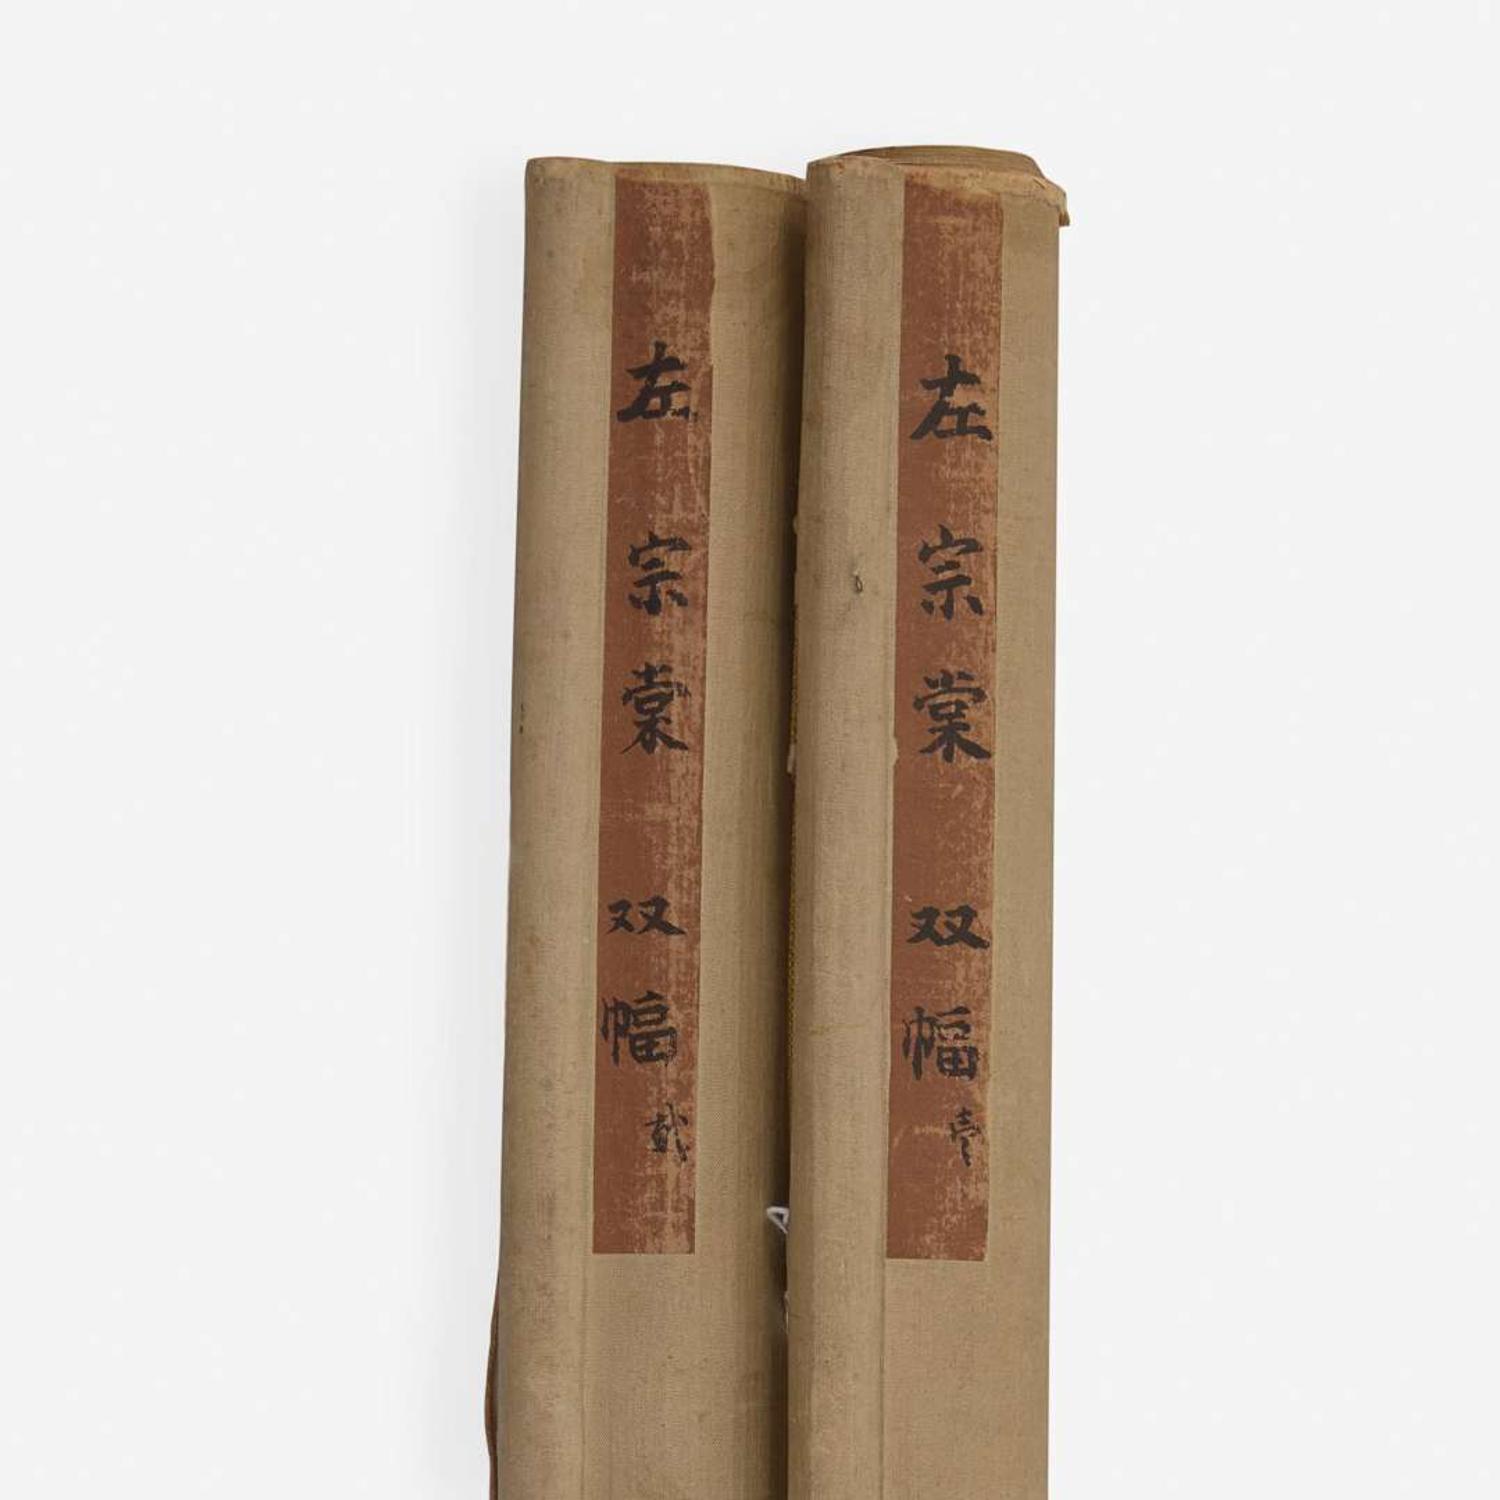 左宗棠 双幅 壱
左宗棠 双幅 弍